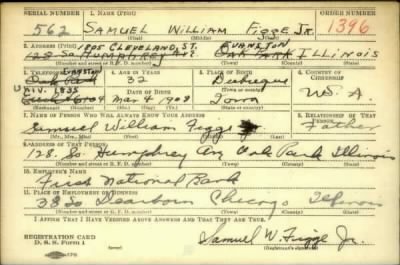 SERIAL NUMBER 1. NAME (Print) ORDER NUMBER
562 SAMUEL WILLIAM FIGGE JR. 1396
(First) (Middle) (Last)
1805 CLEVELAND ST. EVANSTON
2. ADDRESS (Print)
128 So HUMPHREY AVE OAK PARK ILLINOIS
(Number and street or R. F. D. number) (Town) (County) (State)
3. TELEPHONE 4. AGE IN YEARS 5. PLACE OF BIRTH 6. COUNTRY OF CITIZENSHIP
EVANSTON
32 Dubuque
UNI. 1835 DATE OF BIRTH (Town or county) U.S.A.
Mar 4 1908 Iowa
(Exchange) (Number) (Mo.) (Day) (Yr.) (State or country)
7. NAME OF PERSON WHO WILL ALWAYS KNOW YOUR ADDRESS 8. RELATIONSHIP OF THAT PERSON
Samuel William Figge Father
(Mr., Mrs., Miss) (First) (Middle) (Last)
9. ADDRESS OF THAT PERSON
128 So. Humphrey Av Oak Park Illinois
(Number and street or R. F. D. number) (Town) (County) (State)
10. EMPLOYER'S NAME
First National Bank
11. PLACE OF EMPLOYMENT OR BUSINESS
38 So Dearborn Chicago Illinois
(Number and street or R. F. D. number) (Town) (County) (State)
I AFFIRM THAT I HAVE VERIFIED ABOVE ANSWERS AND THAT THEY ARE TRUE.
REGISTRATION CARD
D. S. S. Form 1 Samuel W. Figge Jr.
(Registrant's signature)